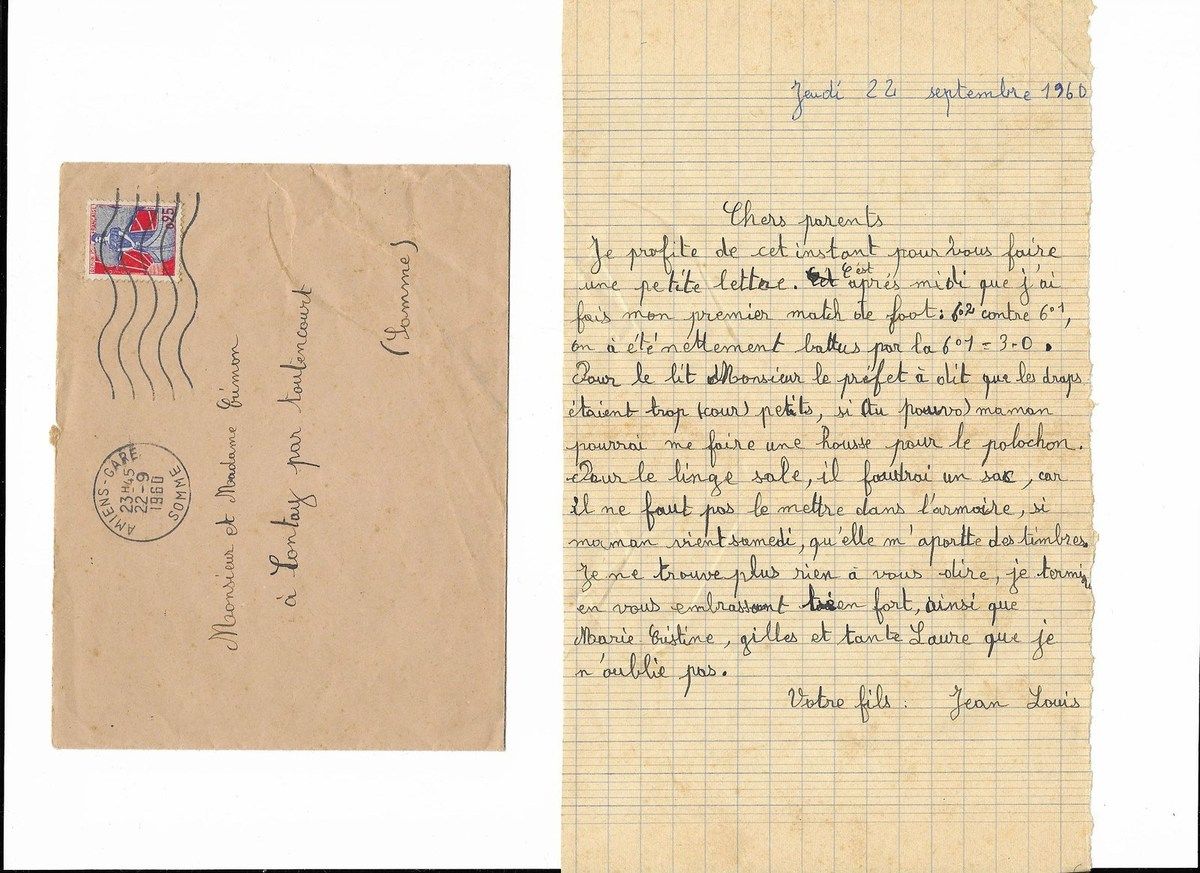 0,25
AMIENS-GARE
23H45
22-9
1960
SOMME
Monsieur et Madame Crimon
à Contay par toutencourt
(Somme)
Jeudi 22 septembre 1960
Chers parents
Je profite de cet instant pour vous faire
une petite lettre. C'est aprés midi que j'ai
fais mon premier match de foot : 6°2 contre 6°1,
on à été nettement battus par la 6°1 = 3-0.
Pour le lit Monsieur le préfet à dit que les draps
étaient trop (cour) petits, si tu pouvo) maman
pourrai me faire une housse pour le polochon.
Pour le linge sale, il faudrai un sac, car
il ne faut pas le mettre dans l'armoire, si
maman vient samedi, qu'elle m'aportte des timbres.
Je ne trouve plus rien à vous dire, je termine
en vous embrassant bien fort, ainsi que
Marie-Cristine, gilles et tante Laure que je
n'oublie pas.
Votre fils : Jean Louis